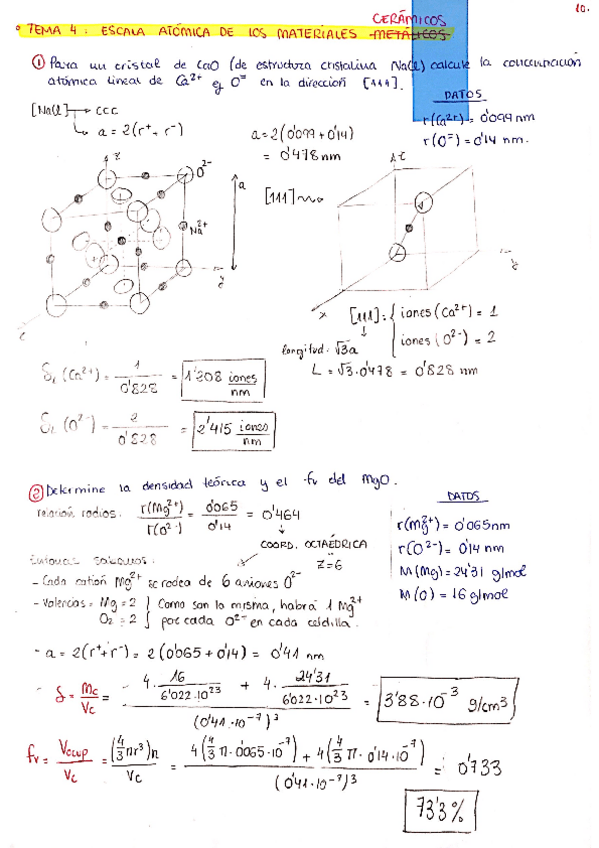 10.
CERÁMICOS
• TEMA 4: ESCALA ATÓMICA DE LOS MATERIALES METÁLICOS
① Para un cristal de CaO (de estructura cristalina NaCl) calcule la concentración
atómica lineal de Ca²⁺ y O⁼ en la dirección [111].
DATOS
r(Ca²⁺) = 0'099 nm
r(O⁼) = 0'14 nm.
[NaCl] → CCC
↳ a = 2(r⁺ + r⁻)
a = 2(0'099 + 0'14)
= 0'478 nm
z
O²⁻
a
Na²⁺
y
[111]
z
y
x
[111]: { iones (Ca²⁺) = 1
iones (O²⁻) = 2
longitud: √3a
L = √3·0'478 = 0'828 nm
δL (Ca²⁺) = 1 / 0'828 = 1'208 iones/nm
δL (O²⁻) = 2 / 0'828 = 2'415 iones/nm
② Determine la densidad teórica y el fv del MgO.
DATOS
r(Mg²⁺) = 0'065 nm
r(O²⁻) = 0'14 nm
M(Mg) = 24'31 g/mol
M(O) = 16 g/mol
relación radios: r(Mg²⁺) / r(O²⁻) = 0'065 / 0'14 = 0'464
↓
COORD. OCTAÉDRICA
Z=6
Entonces sabemos:
- Cada catión Mg²⁺ se rodea de 6 aniones O²⁻
- Valencias = Mg = 2 } Como son la misma, habrá 1 Mg²⁺
O₂ = 2 } por cada O²⁻ en cada celdilla.
- a = 2(r⁺ + r⁻) = 2(0'065 + 0'14) = 0'41 nm
- δ = mc / Vc = (4· 16 / 6'022·10²³ + 4· 24'31 / 6'022·10²³) / (0'41·10⁻⁷)³ = 3'88·10⁻³ g/cm³
fv = Vocup / Vc = (4/3 πr³)n / Vc = (4(4/3 π·0'065·10⁻⁷) + 4(4/3 π·0'14·10⁻⁷)) / (0'41·10⁻⁷)³ = 0'733
73'3%